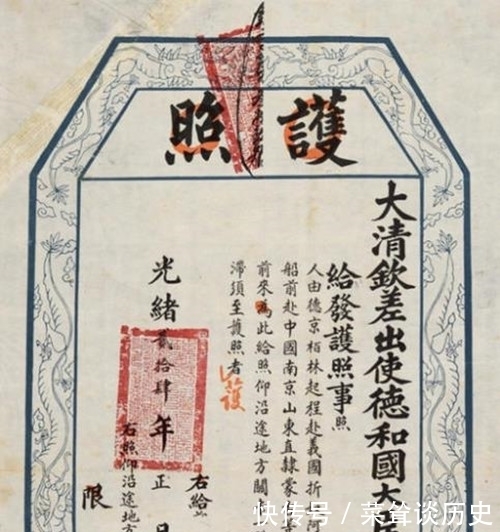 護照
大清欽差出使德和國大
給發護照事照
人由德京柏林起程赴義國折
船前赴中國南京山東直隸蒙
前來為此給照仰沿途地方關
滯須至護照者
護
右給
光緒貳拾肆年正
右照仰沿途地方
限
快传号/菜耸谈历史